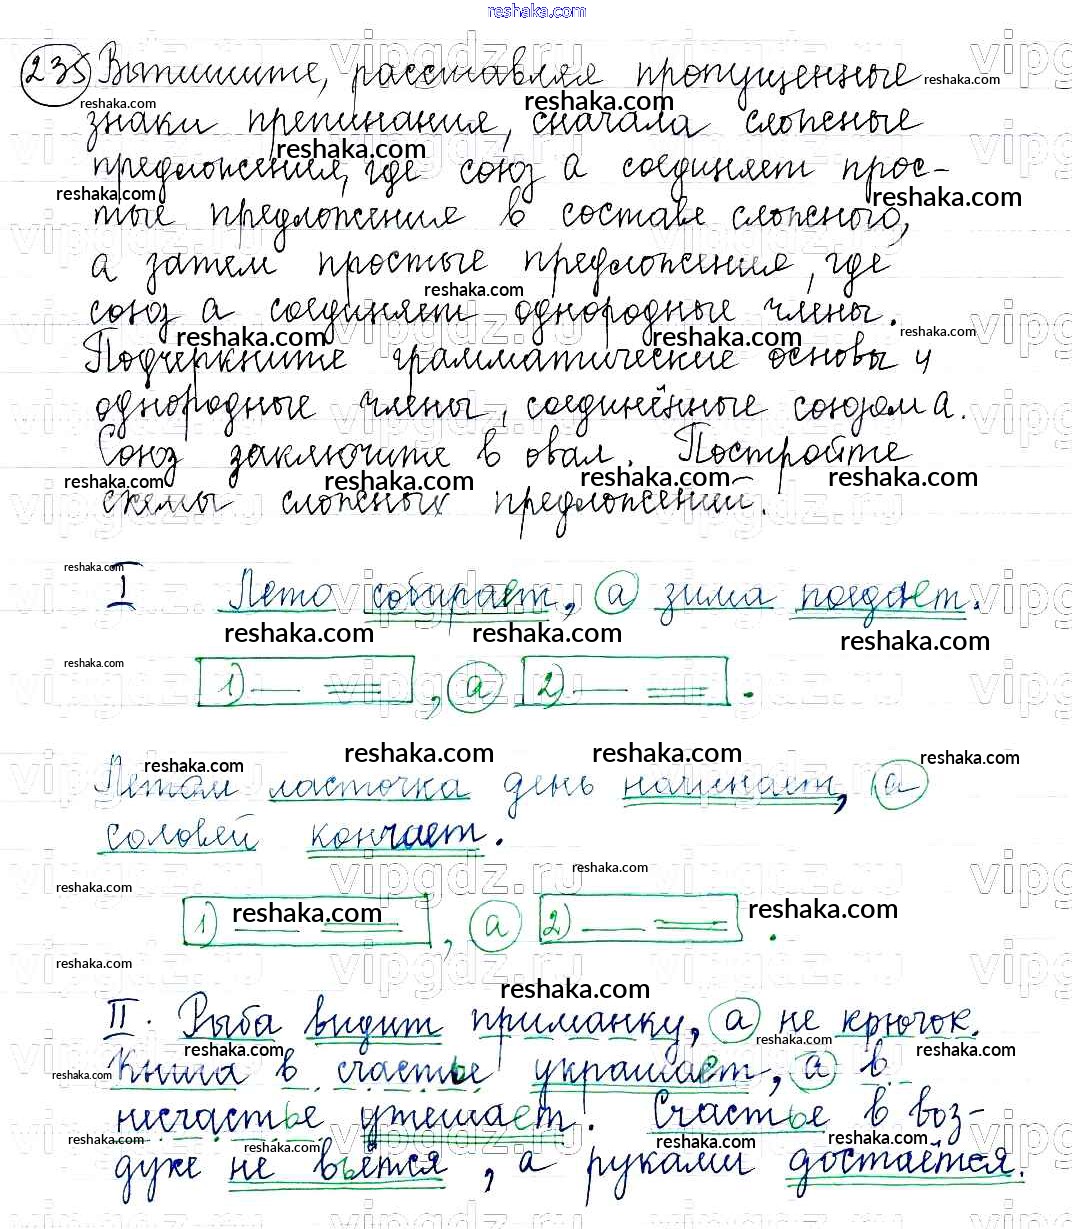 reshaka.com
235 Выпишите, расставляя пропущенные
знаки препинания, сначала сложные
предложения, где союз а соединяет прос-
тые предложения в составе сложного,
а затем простые предложения, где
союз а соединяет однородные члены.
Подчеркните грамматические основы и
однородные члены, соединённые союзом а.
Союз заключите в овал. Постройте
схемы сложных предложений.
I Лето собирает, а зима поедает.
1) , а 2) .
Летом ласточка день начинает, а
соловей кончает.
1) , а 2) .
II. Рыба видит приманку, а не крючок.
Книга в счастье украшает, а в
несчастье утешает. Счастье в воз-
духе не вьётся, а руками достаётся.